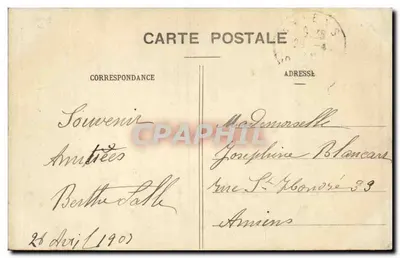 CARTE POSTALE
CORRESPONDANCE
ADRESSE
Souvenir
Amitiées
Berthe Salle
Avril
Mademoiselle
Joséphine Blancart
rue St Honoré 33
Amiens
CPAPHIL